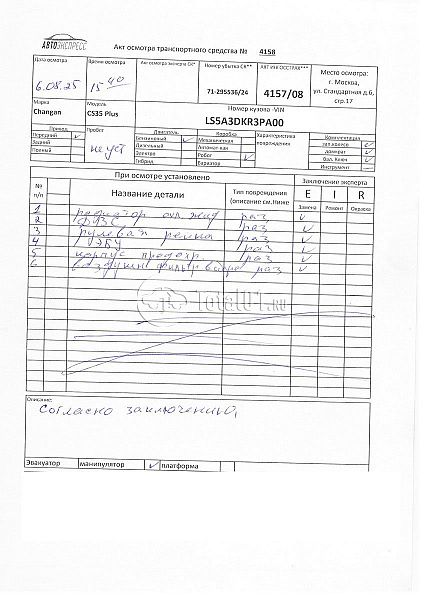 АВТОЭКСПРЕСС
Акт осмотра транспортного средства № 4158
Дата осмотра
6.08.25
Время осмотра
15 40
Акт осмотр эксперта СК*
Номер убытка СК**
71-295536/24
АКТ ИНК ОССТРАХ***
4157/08
Место осмотра:
г. Москва,
ул. Стандартная д.6,
стр.17
Марка
Changan
Модель
CS35 Plus
Номер кузова -VIN
LS5A3DKR3PA00
Привод
Передний
Задний
Полный
Пробег
неуст
Двигатель
Бензиновый
Дизельный
Электро
Гибрид
Коробка
Механическая
Автомат-кая
Робот
Вариатор
Характеристика
повреждения
Комментация
зап.колесо
домкрат
бал. Ключ
Инструмент
При осмотре установлено
Заключение эксперта
№ п/п
Название детали
Тип повреждения
(описание см.Ниже
E I R
Замена Ремонт Окраска
1 радиатор охл. жид раз
2 раз
3 рулевая рейка раз
4 ЭБУ раз
5 корпус раз
6 фильтр раз
Total01.ru
Описание:
Согласно заключению,
Эвакуатор манипулятор платформа